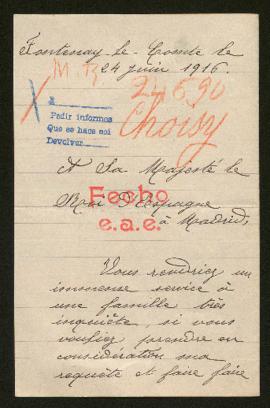 Fontenay-le-Comte le
24 juin 1916.
M. B
24690
Choisy
A
Pedir informes
Que se hace soi
Devolver
A Sa Majesté le
Roi d'Espagne
à Madrid,
Fecho
e.a.e.
Vous rendriez un
immense service à
une famille très
inquiète, si vous
vouliez prendre en
considération ma
requête et faire faire